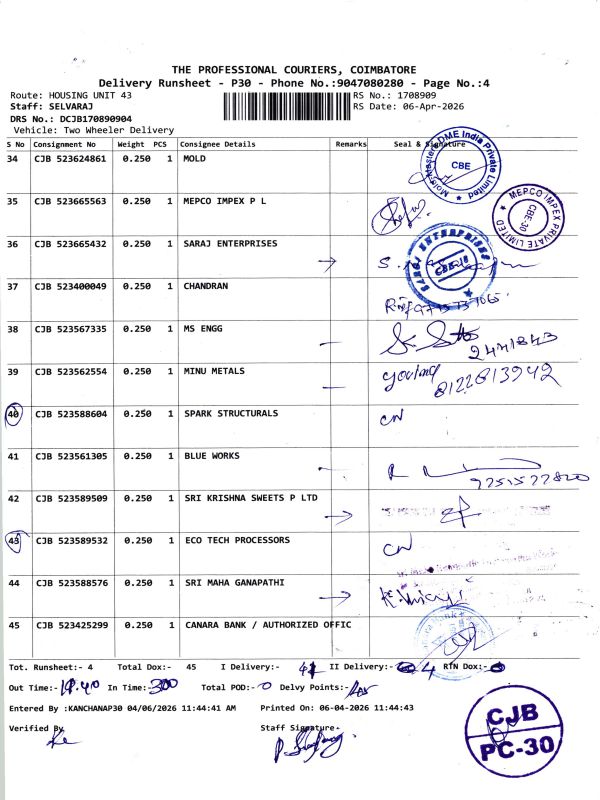 THE PROFESSIONAL COURIERS, COIMBATORE
Delivery Runsheet - P30 - Phone No.:9047080280 - Page No.:4
Route: HOUSING UNIT 43 RS No.: 1708909
Staff: SELVARAJ RS Date: 06-Apr-2026
DRS No.: DCJB170890904
Vehicle: Two Wheeler Delivery
S No Consignment No Weight PCS Consignee Details Remarks Seal & Signature
34 CJB 523624861 0.250 1 MOLD
CBE
35 CJB 523665563 0.250 1 MEPCO IMPEX P L
MEPCO IMPEX PRIVATE LIMITED CBE-30
36 CJB 523665432 0.250 1 SARAJ ENTERPRISES
SARAJ ENTERPRISES
37 CJB 523400049 0.250 1 CHANDRAN
38 CJB 523567335 0.250 1 MS ENGG
2441843
39 CJB 523562554 0.250 1 MINU METALS
8122813942
40 CJB 523588604 0.250 1 SPARK STRUCTURALS CN
41 CJB 523561305 0.250 1 BLUE WORKS
42 CJB 523589509 0.250 1 SRI KRISHNA SWEETS P LTD
43 CJB 523589532 0.250 1 ECO TECH PROCESSORS CN
44 CJB 523588576 0.250 1 SRI MAHA GANAPATHI
45 CJB 523425299 0.250 1 CANARA BANK / AUTHORIZED OFFIC
Tot. Runsheet:- 4 Total Dox:- 45 I Delivery:- 41 II Delivery:- 4 RTN Dox:-
Out Time:- In Time:- 300 Total POD:- 0 Delvy Points:-
Entered By :KANCHANAP30 04/06/2026 11:44:41 AM Printed On: 06-04-2026 11:44:43
Verified By Staff Signature-
CJB
PC-30